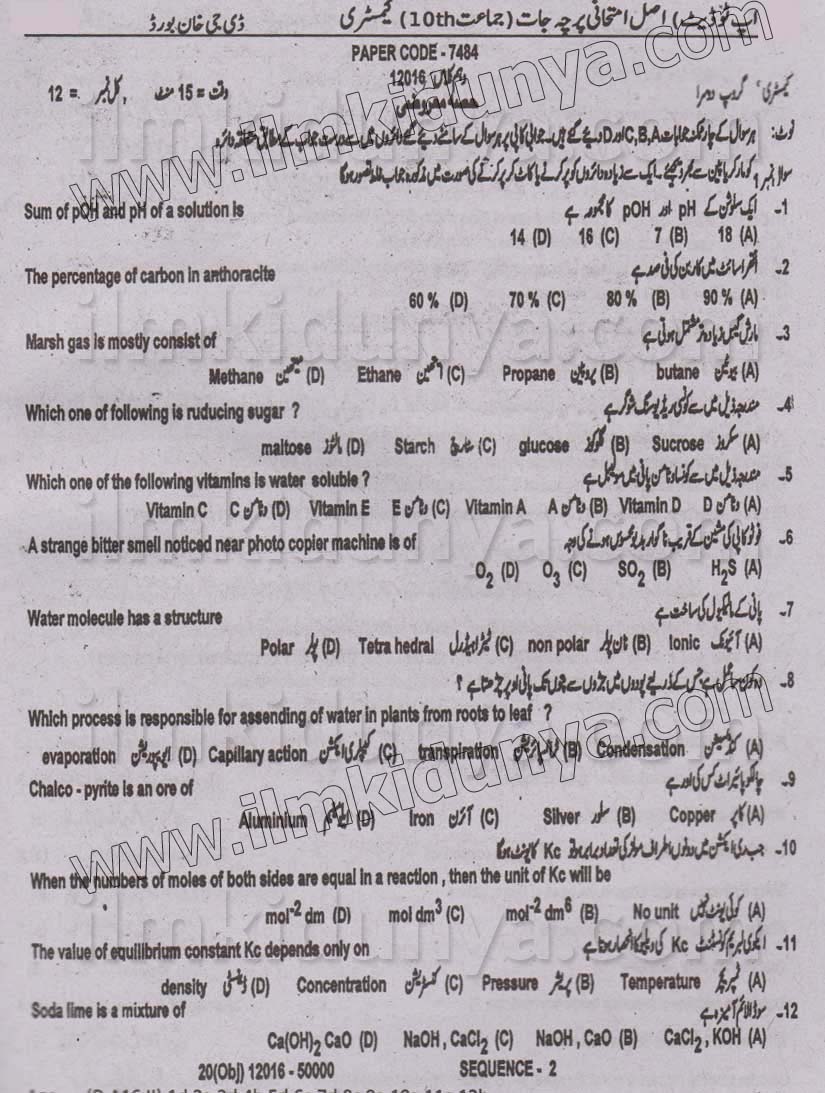 اپ ٹو ڈیٹ) اصل امتحانی پرچہ جات (جماعت 10th) کیمسٹری ڈی جی خان بورڈ
PAPER CODE - 7484
12016
کیمسٹری گروپ دوسرا وقت = 15 منٹ کل نمبر = 12
نوٹ: ہر سوال کے چار ممکنہ جوابات A,B,C اور D دیے گئے ہیں۔ جوابی کاپی پر ہر سوال کے سامنے دیے گئے دائروں میں سے درست جواب کے مطابق متعلقہ دائرہ
سوال نمبر 1 کو مارکر یا پین سے بھر دیجئے۔ ایک سے زیادہ دائروں کو پر کرنے یا کاٹ کر پر کرنے کی صورت میں مذکورہ جواب غلط تصور ہوگا
1۔ ایک سلوشن کے pH اور pOH کا مجموعہ ہے Sum of pOH and pH of a solution is
18 (A) 7 (B) 16 (C) 14 (D)
2۔ انتھراسائٹ میں کاربن کی فی صد ہے The percentage of carbon in anthoracite
90 % (A) 80 % (B) 70 % (C) 60 % (D)
3۔ مارش گیس زیادہ تر مشتمل ہوتی ہے Marsh gas is mostly consist of
(A) بیوٹین butane (B) پروپین Propane (C) ایتھین Ethane (D) میتھین Methane
4۔ مندرجہ ذیل میں سے کونسی ریڈیوسنگ شوگر ہے Which one of following is ruducing sugar ?
(A) سکروز Sucrose (B) گلوکوز glucose (C) سٹارچ Starch (D) مالٹوز maltose
5۔ مندرجہ ذیل میں سے کونسا وٹامن پانی میں سولیبل ہے Which one of the following vitamins is water soluble ?
(A) وٹامن D Vitamin D (B) وٹامن A Vitamin A (C) وٹامن E Vitamin E (D) وٹامن C Vitamin C
6۔ فوٹو کاپی کی مشین کے قریب ناگوار بدبو محسوس ہونے کی وجہ A strange bitter smell noticed near photo copier machine is of
H₂S (A) SO₂ (B) O₃ (C) O₂ (D)
7۔ پانی کے مالیکیول کی ساخت ہے Water molecule has a structure
(A) آئیونک Ionic (B) نان پولر non polar (C) ٹیٹراہیڈرل Tetra hedral (D) پولر Polar
8۔ وہ کون سا عمل ہے جس کے ذریعے پودوں میں جڑوں سے پتوں تک پانی اوپر چڑھتا ہے ؟
Which process is responsible for assending of water in plants from roots to leaf ?
(A) کنڈنسیشن Condensation (B) ٹرانسپائریشن transpiration (C) کیپلری ایکشن Capillary action (D) ایوپوریشن evaporation
9۔ چالکو پائیرائٹ کس کی اور ہے Chalco - pyrite is an ore of
(A) کاپر Copper (B) سلور Silver (C) آئرن Iron (D) ایلومینیم Aluminium
10۔ جب ری ایکشن میں دونوں اطراف مولز کی تعداد برابر ہو تو Kc کا یونٹ ہوگا
When the numbers of moles of both sides are equal in a reaction , then the unit of Kc will be
(A) کوئی یونٹ نہیں No unit (B) mol⁻² dm⁶ (C) mol dm³ (D) mol⁻² dm
11۔ ایکوی لبریم کونسٹنٹ Kc کی ویلیو کا انحصار ہوتا ہے The value of equilibrium constant Kc depends only on
(A) ٹمپریچر Temperature (B) پریشر Pressure (C) کنسنٹریشن Concentration (D) ڈینسٹی density
12۔ سوڈا لائم آمیزہ ہے Soda lime is a mixture of
CaCl₂ , KOH (A) NaOH , CaO (B) NaOH , CaCl₂ (C) Ca(OH)₂ CaO (D)
20(Obj) 12016 - 50000 SEQUENCE - 2
www.ilmkidunya.com
www.ilmkidunya.com
ilmkidunya.com
ilmkidunya.com
ilmkidunya.com
ilmkidunya.com
ilmkidunya.com